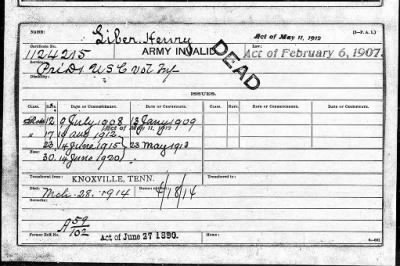 Act of May 11, 1912 (3-P. A. I.)
NAME Henry
Certificate No. ARMY INVALID. Law:
1124215 Act of February 6, 1907.
Service: DEAD
Priv. D. U S C Vol Inf
Disability:
ISSUES.
CLASS. RATE. DATE OF COMMENCEMENT. DATE OF CERTIFICATE. CLASS. RATE. DATE OF COMMENCEMENT. DATE OF CERTIFICATE.
12 9 July 1908 13 Jany 1909
Act of May 11, 1912
17 1912
23 14 June 1915 23 May 1913
30 14 June 1920
Transferred from: KNOXVILLE, TENN. Transferred to:
Died: Mch. 28. 1914 4/18/14
Remarks:
A 59/102
Former Roll No. Act of June 27 1890.